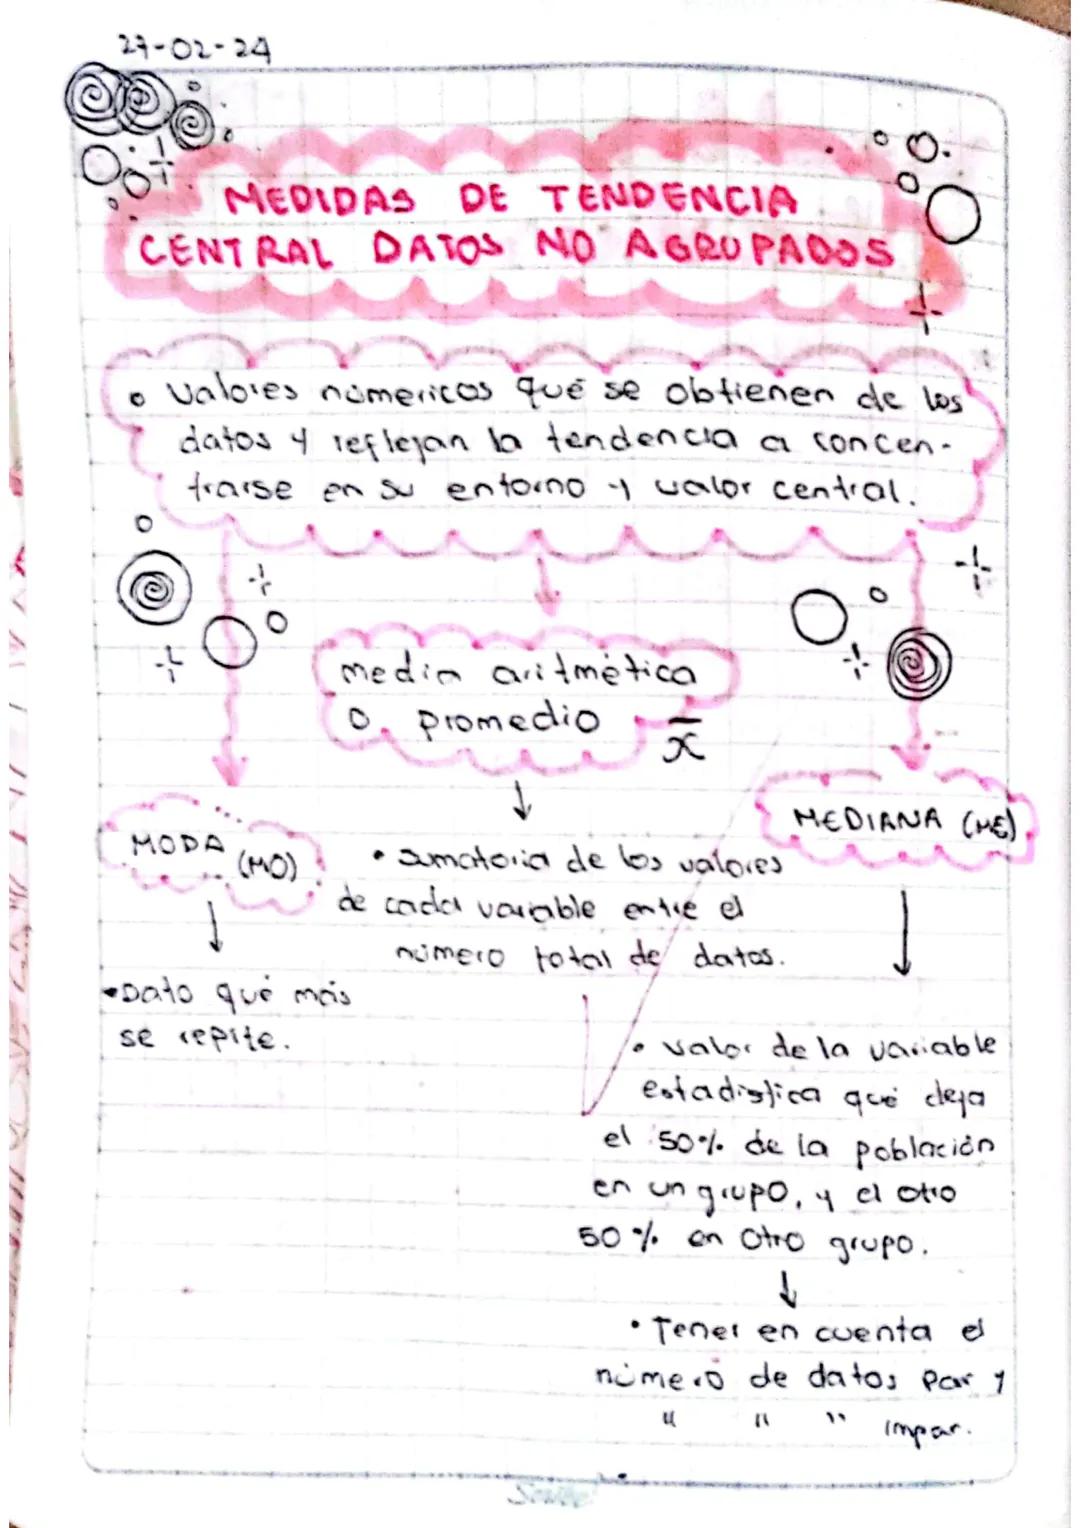 27-02-24
MEDIDAS DE TENDENCIA
CENTRAL DATOS NO AGRUPADOS
• Valores númericos qué se obtienen de los
datos y reflejan la tendencia a concen-
trarse en su entorno y valor central.
media aritmética
o promedio x̄
MODA (MO)
MEDIANA (ME)
• Sumatoria de los valores
de cada variable entre el
número total de datos.
• Dato qué más
se repite.
• Valor de la variable
estadistica qué deja
el 50% de la población
en un grupo, y el otro
50% en otro grupo.
• Tener en cuenta el
número de datos Par y
" " " impar.